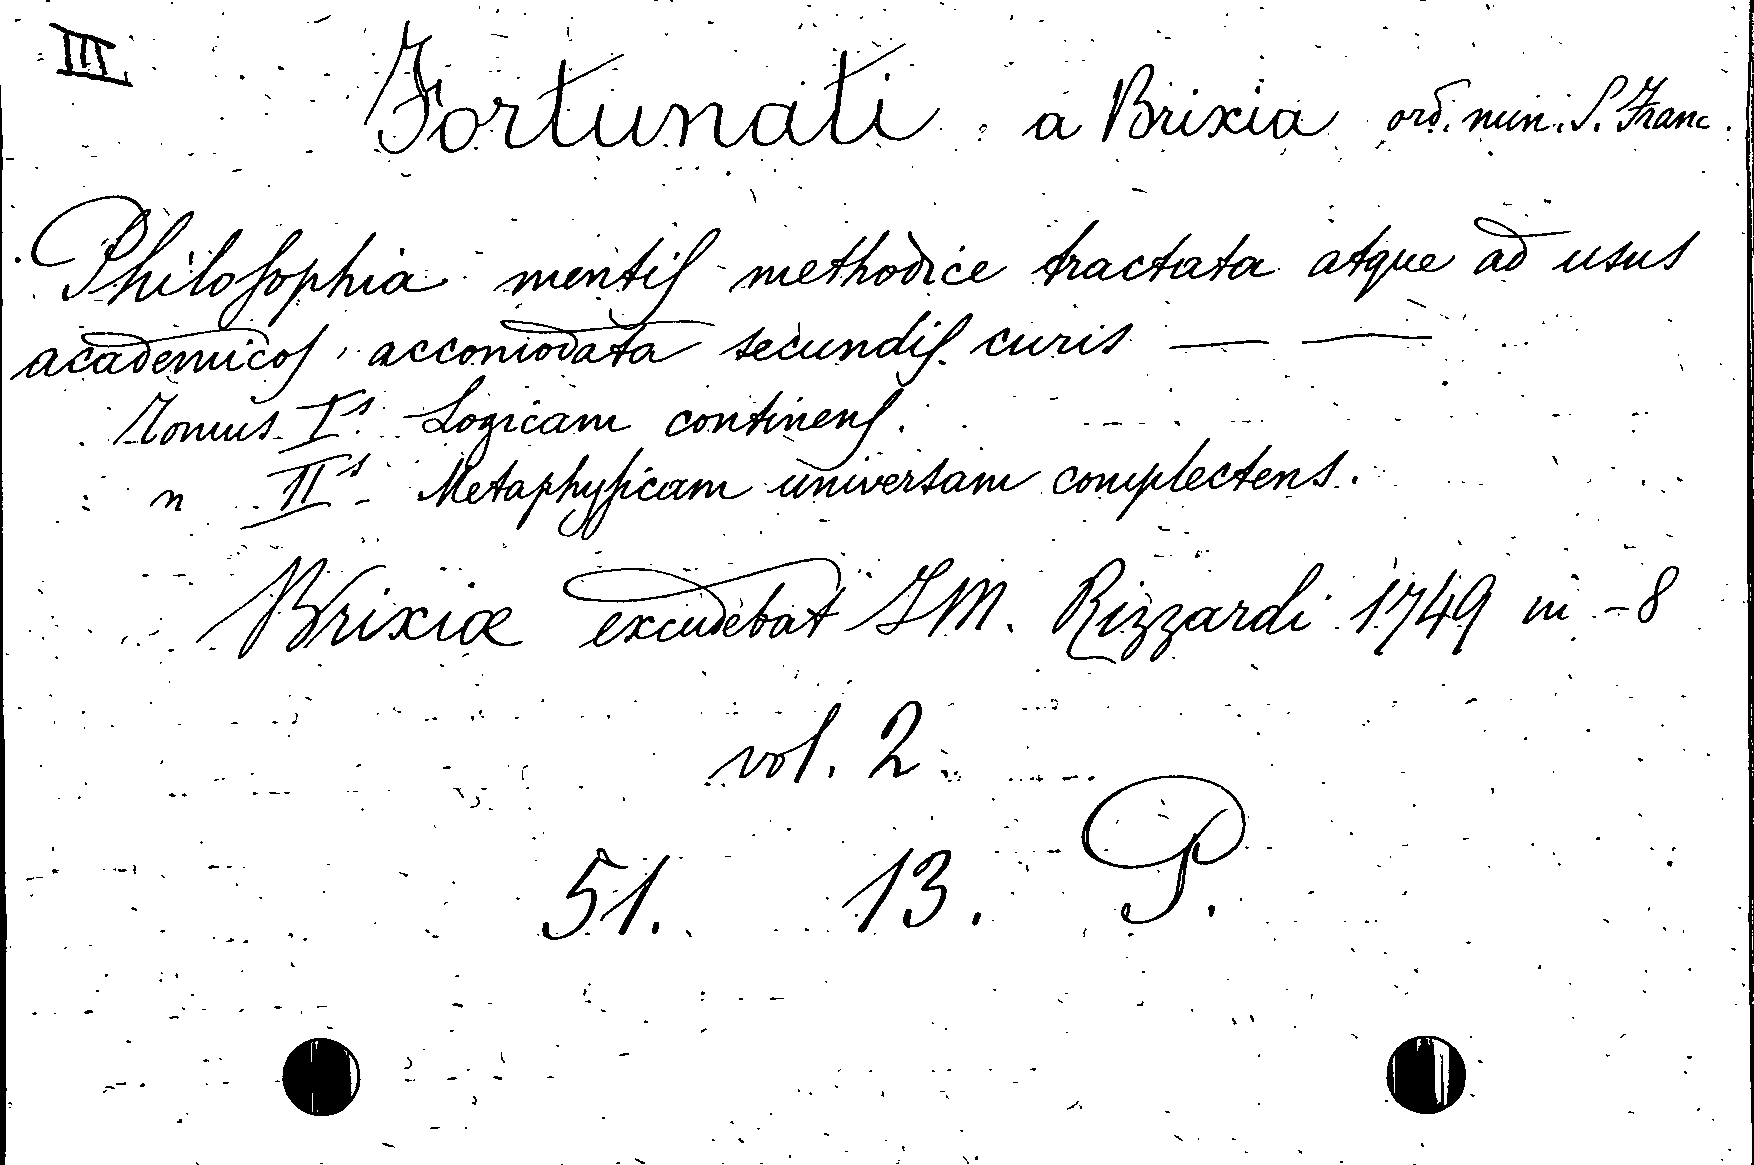 III
Fortunati a Brixia ord. min. S. Franc.
Philosophia mentis methodice tractata atque ad usus
academicos accomodata secundis curis — —
Tomus Is Logicam continens.
" IIs Metaphysicam universam complectens.
Brixiæ excudebat I M. Rizzardi 1749 in -8
vol. 2
51. 13. P.